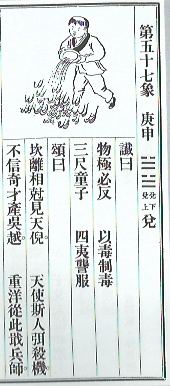 第五十七象 庚申 ䷹ 兌下兌上 兌
讖曰
物極必反 以毒制毒
三尺童子 四夷讋服
頌曰
坎離相剋見天倪 天使斯人弭殺機
不信奇才產吳越 重洋從此戢兵師